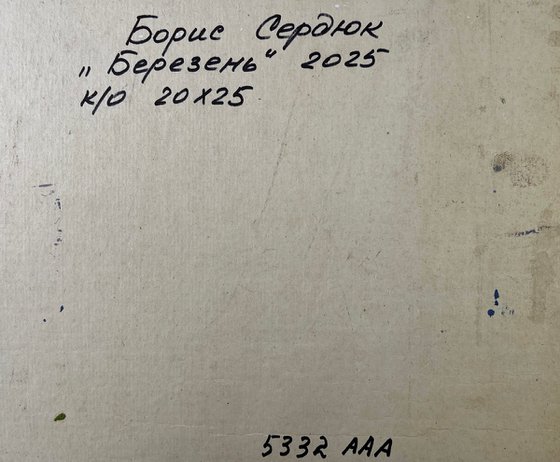 Борис Сердюк
„Березень“ 2025
к/о 20х25
5332 ААА